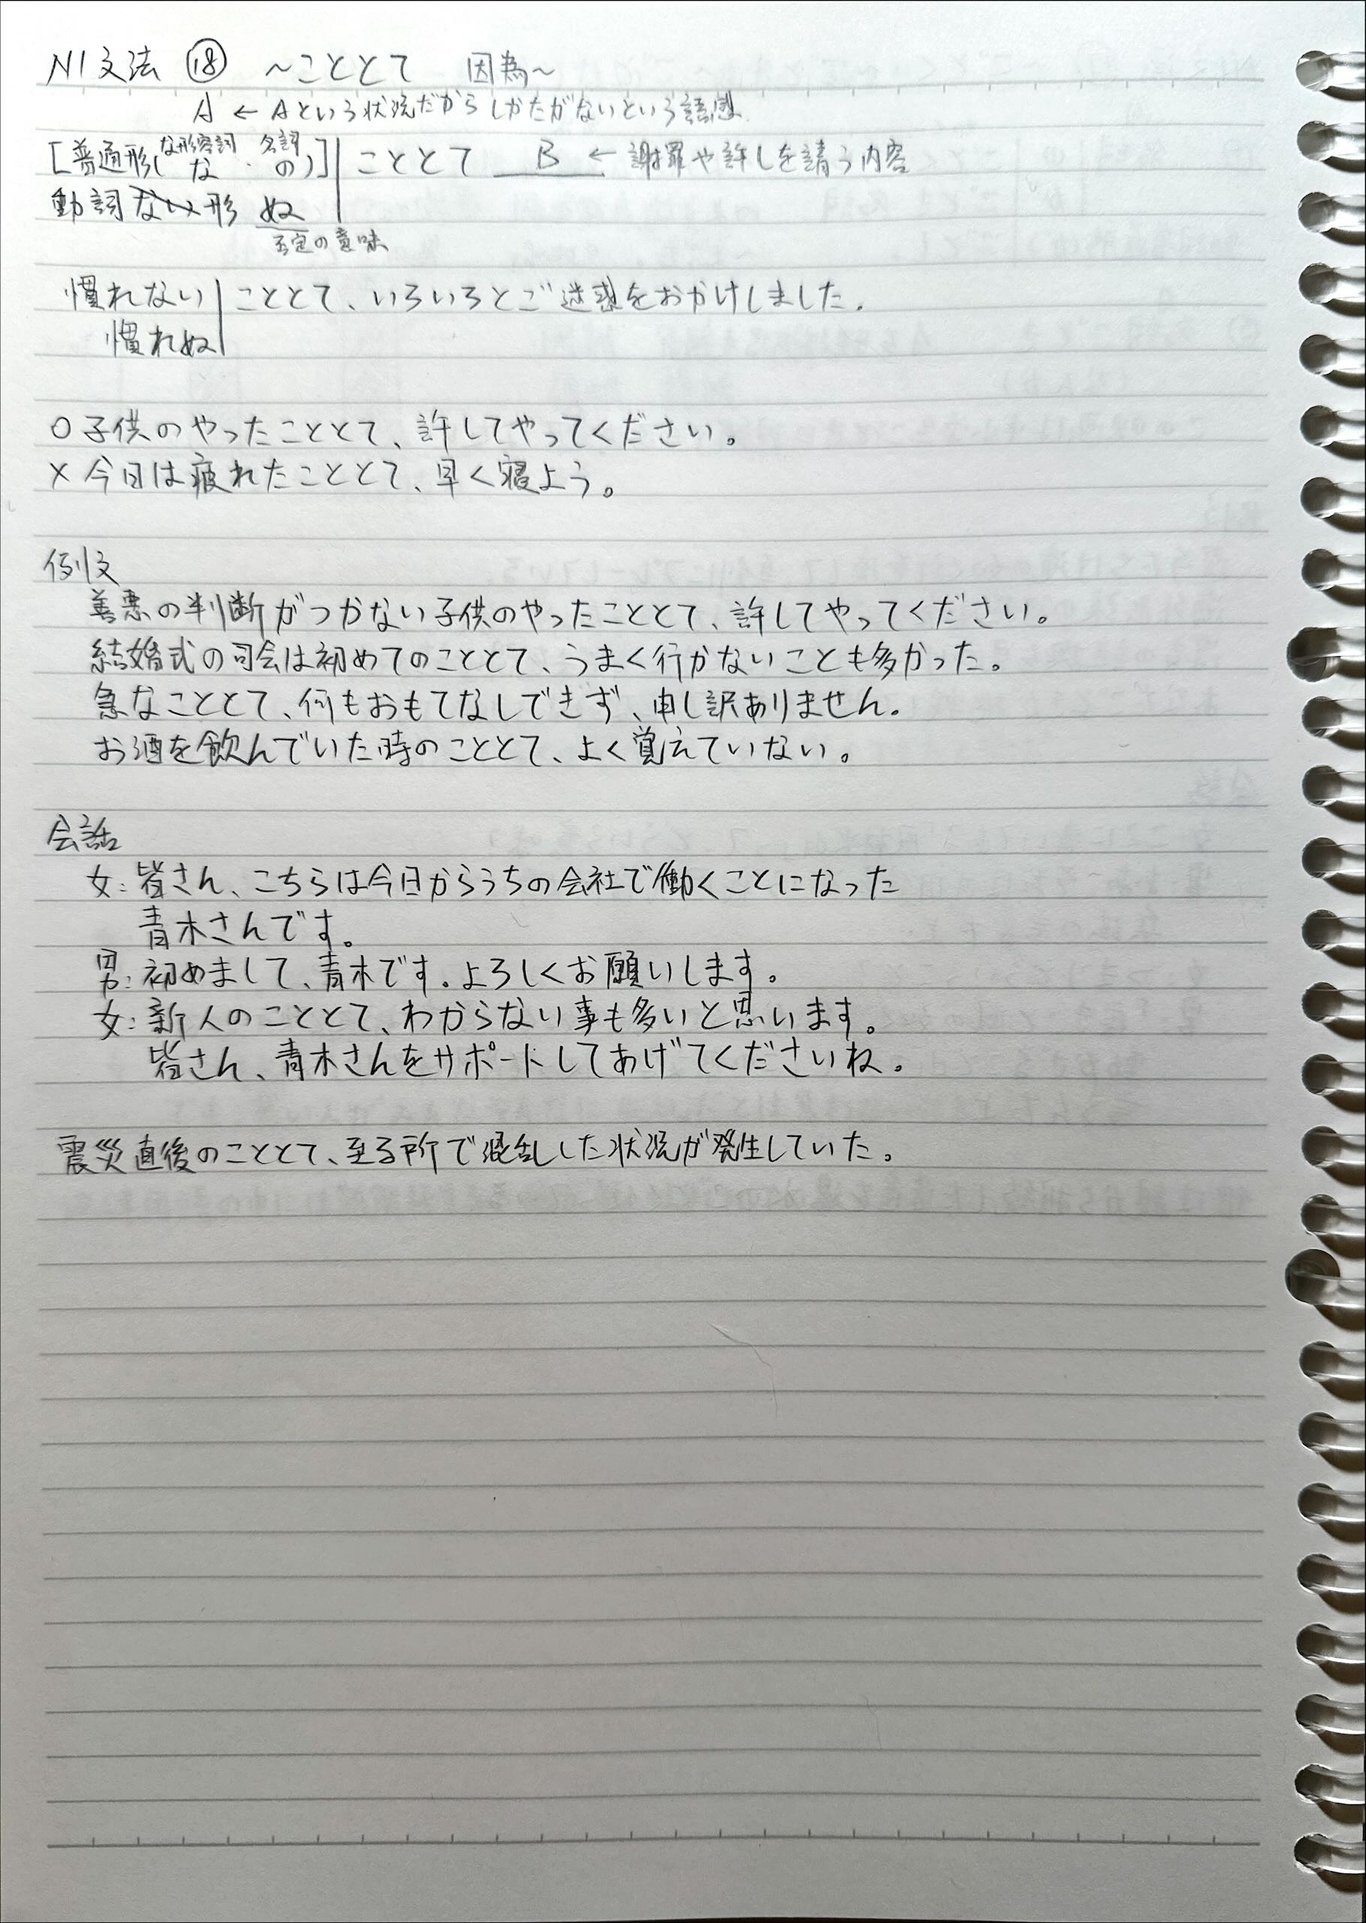 N1文法 ⑱ ～こととて 因為～
A ← Aという状況だからしかたがないという語感
[普通形(な形容詞 な・名詞 の)] こととて B ← 謝罪や許しを請う内容
動詞ない形 ぬ
否定の意味
慣れない こととて、いろいろとご迷惑をおかけしました.
慣れぬ
○子供のやったこととて、許してやってください。
×今日は疲れたこととて、早く寝よう。
例文
善悪の判断がつかない子供のやったこととて、許してやってください。
結婚式の司会は初めてのこととて、うまく行かないことも多かった。
急なこととて、何もおもてなしできず、申し訳ありません。
お酒を飲んでいた時のこととて、よく覚えていない。
会話
女:皆さん、こちらは今日からうちの会社で働くことになった
青木さんです。
男:初めまして、青木です。よろしくお願いします。
女:新人のこととて、わからない事も多いと思います。
皆さん、青木さんをサポートしてあげてくださいね。
震災直後のこととて、至る所で混乱した状況が発生していた。